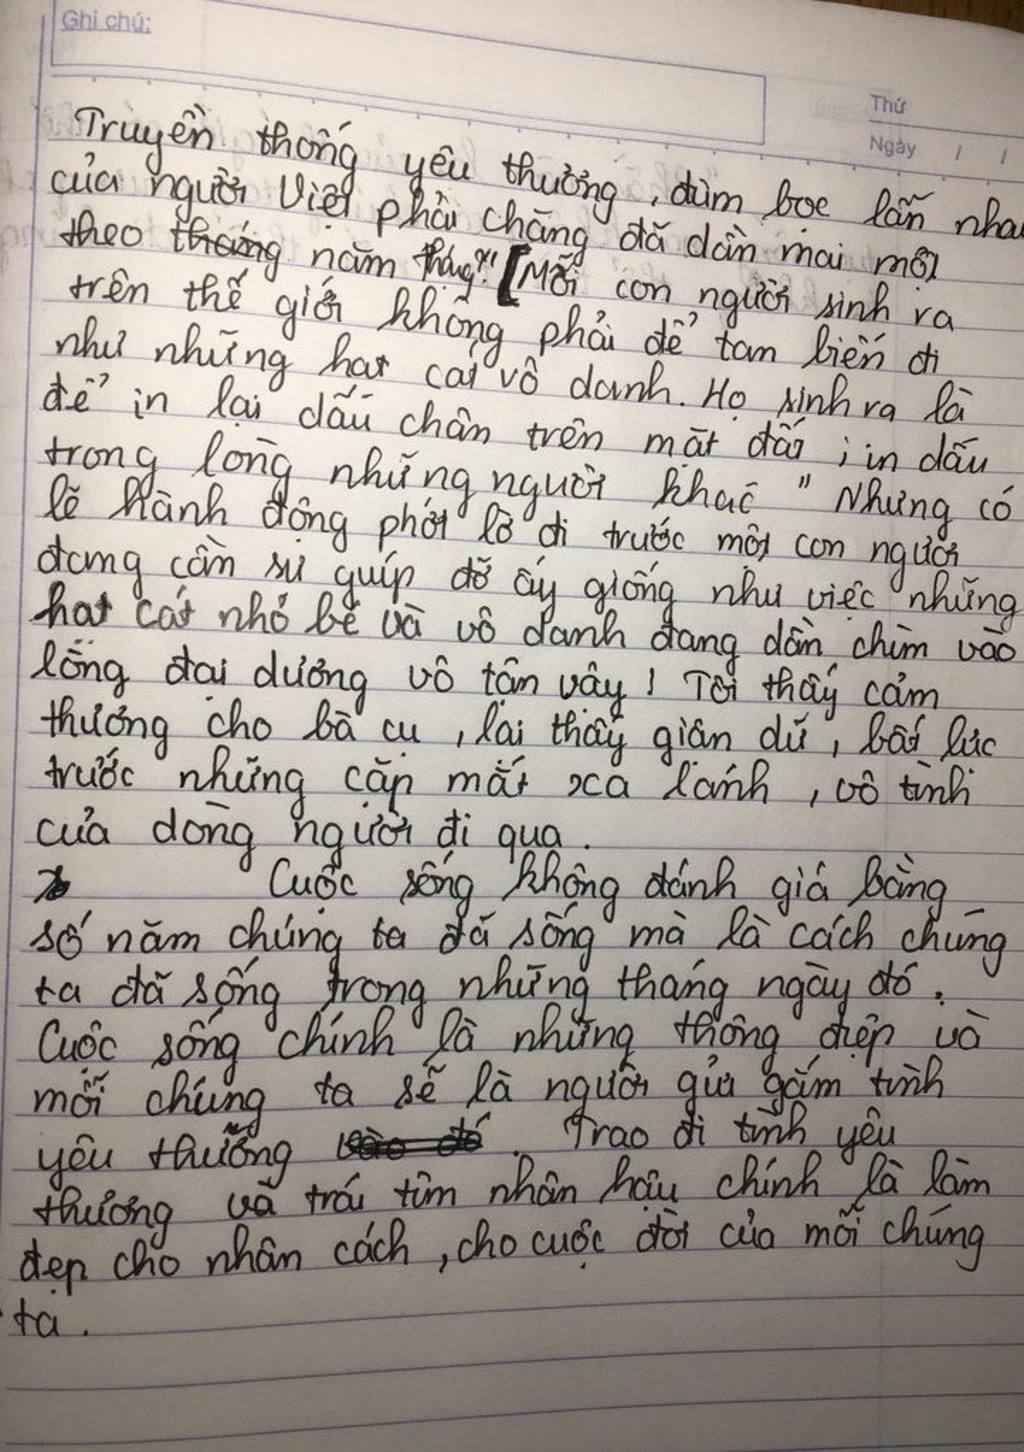 Ghi chú:
Thứ
Ngày / /
Truyền thống yêu thương, đùm bọc lẫn nhau
của người Việt phải chăng đã dần mai một
theo tháng năm tháng? "[Mỗi con người sinh ra
trên thế giới không phải để tan biến đi
như những hạt cát vô danh. Họ sinh ra là
để in lại dấu chân trên mặt đất; in dấu
trong lòng những người khác" Nhưng có
lẽ hành động phớt lờ đi trước một con người
đang cần sự guíp đỡ ấy giống như việc những
hạt cát nhỏ bé và vô danh đang dần chìm vào
lòng đại dương vô tận vậy! Tôi thấy cảm
thương cho bà cụ, lại thấy giận dữ, bất lực
trước những cặp mắt xa lánh, vô tình
của dòng người đi qua.
Cuộc sống không đánh giá bằng
số năm chúng ta đã sống mà là cách chúng
ta đã sống trong những tháng ngày đó.
Cuộc sống chính là những thông điệp và
mỗi chúng ta sẽ là người gửi gắm tình
yêu thương vào đó. Trao đi tình yêu
thương và trái tim nhân hậu chính là làm
đẹp cho nhân cách, cho cuộc đời của mỗi chúng
ta.